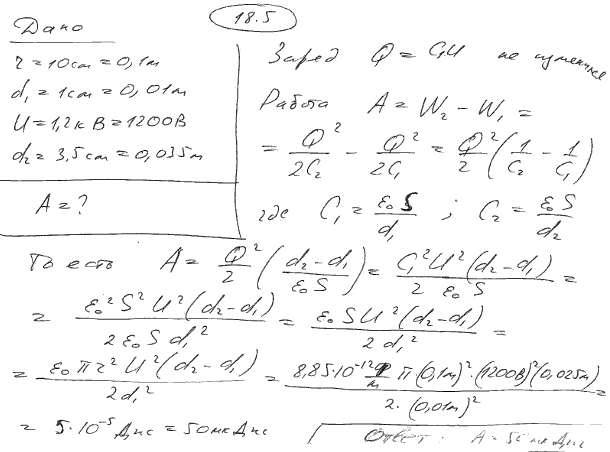 18.5
Дано
r = 10 cm = 0,1 м
d₁ = 1 cm = 0,01 м
U = 1,2 кВ = 1200 В
d₂ = 3,5 cm = 0,035 м
A = ?
Заряд Q = C₁U не
Работа A = W₂ − W₁ =
= Q²/2C₂ − Q²/2C₁ = Q²/2 (1/C₂ − 1/C₁)
где C₁ = ε₀S/d₁ ; C₂ = ε₀S/d₂
То есть A = Q²/2 ((d₂−d₁)/ε₀S) = C₁²U²(d₂−d₁)/2ε₀S =
= ε₀²S²U²(d₂−d₁)/2ε₀Sd₁² = ε₀SU²(d₂−d₁)/2d₁² =
= ε₀πr²U²(d₂−d₁)/2d₁² = 8,85·10⁻¹² Ф/м π(0,1м)²·(1200В)²(0,025м)/2·(0,01м)² =
= 5·10⁻⁵ Дж = 50 мкДж
Ответ: A = 50 мкДж